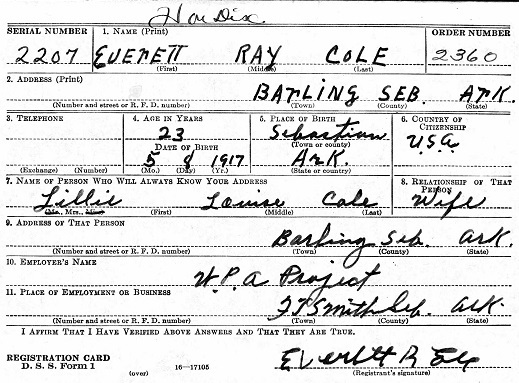 Hon Disc.
SERIAL NUMBER 1. NAME (Print) ORDER NUMBER
2207 EVERETT RAY COLE 2360
(First) (Middle) (Last)
2. ADDRESS (Print)
BARLING SEB. ARK.
(Number and street or R. F. D. number) (Town) (County) (State)
3. TELEPHONE 4. AGE IN YEARS 5. PLACE OF BIRTH 6. COUNTRY OF CITIZENSHIP
23 Sebastian U.S.A.
(Town or county)
DATE OF BIRTH
5 8 1917 Ark.
(Exchange) (Number) (Mo.) (Day) (Yr.) (State or country)
7. NAME OF PERSON WHO WILL ALWAYS KNOW YOUR ADDRESS 8. RELATIONSHIP OF THAT PERSON
Lillie Louise Cole Wife
(Mr., Mrs., Miss) (First) (Middle) (Last)
9. ADDRESS OF THAT PERSON
Barling Seb. Ark.
(Number and street or R. F. D. number) (Town) (County) (State)
10. EMPLOYER'S NAME
W.P.A Project
11. PLACE OF EMPLOYMENT OR BUSINESS
FT Smith Seb. Ark.
(Number and street or R. F. D. number) (Town) (County) (State)
I AFFIRM THAT I HAVE VERIFIED ABOVE ANSWERS AND THAT THEY ARE TRUE.
REGISTRATION CARD
D. S. S. Form 1 (over) 16—17105
Everett R Cole
(Registrant's signature)